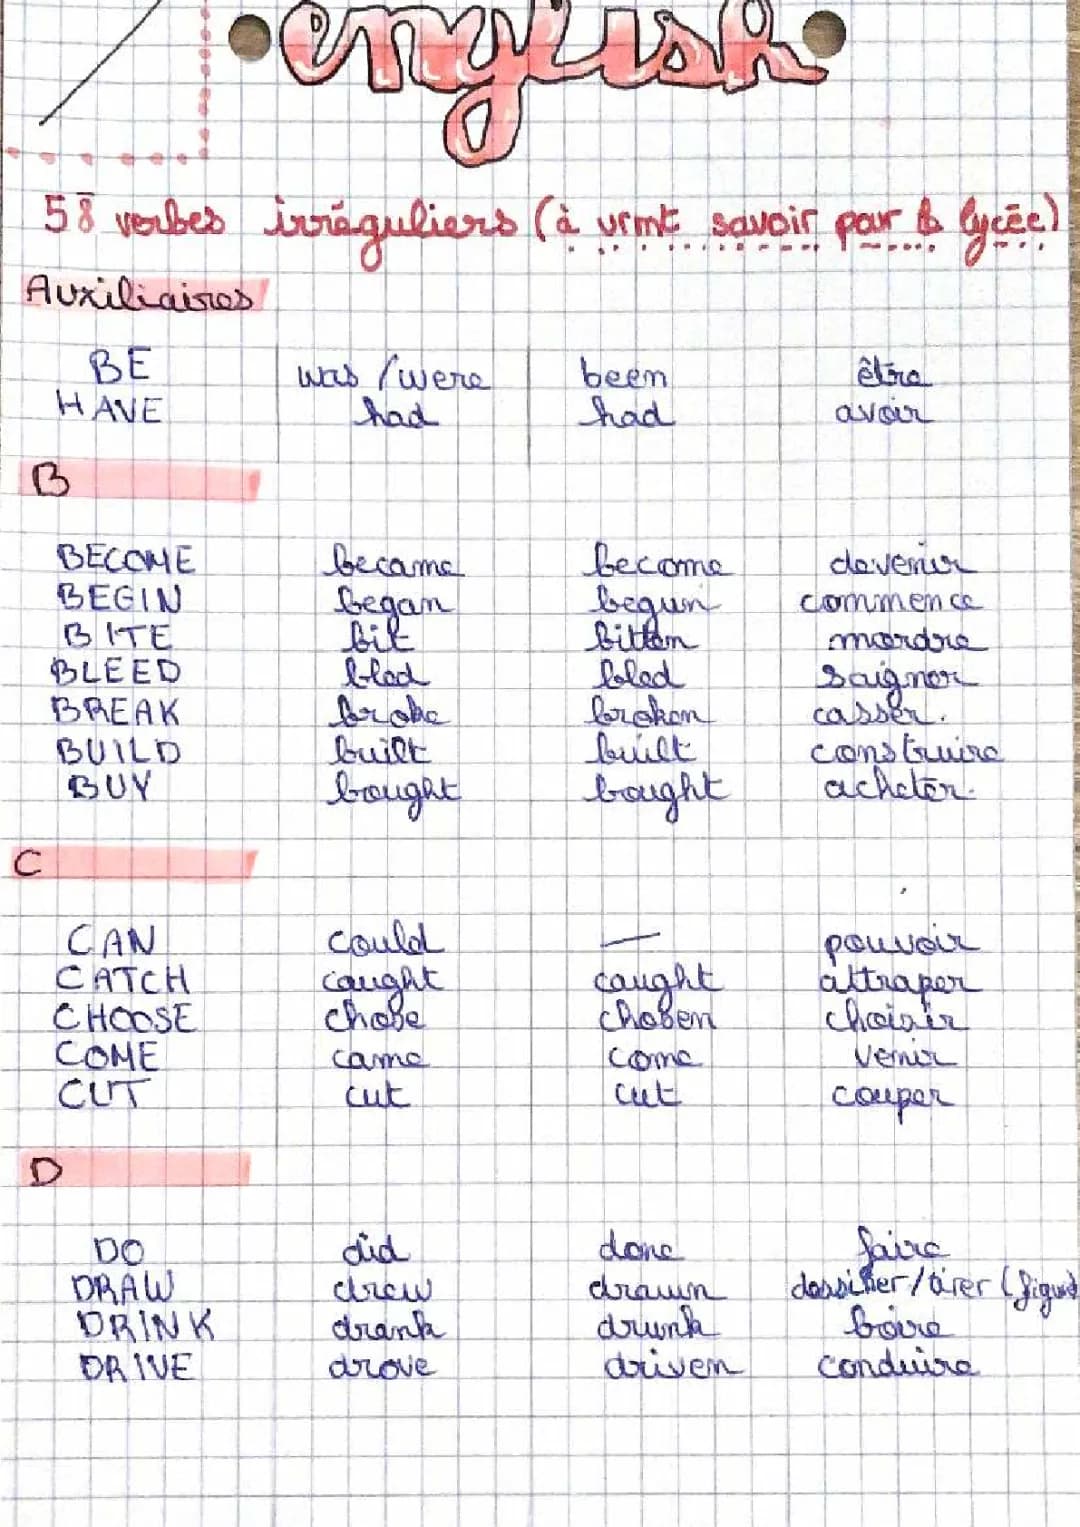 english
58 verbes irréguliers (à vrmt savoir par & lycée)
Auxiliaires
BE was / were been être
HAVE had had avoir
B
BECOME became become devenir
BEGIN began begun commence
BITE bit bitten mordre
BLEED bled bled saigner
BREAK broke broken casser.
BUILD built built construire
BUY bought bought acheter.
C
CAN could — pouvoir
CATCH caught caught attraper
CHOOSE chose chosen choisir
COME came come venir
CUT cut cut couper
D
DO did done faire
DRAW drew drawn dessiner / tirer (figuré
DRINK drank drunk boire
DRIVE drove driven conduire